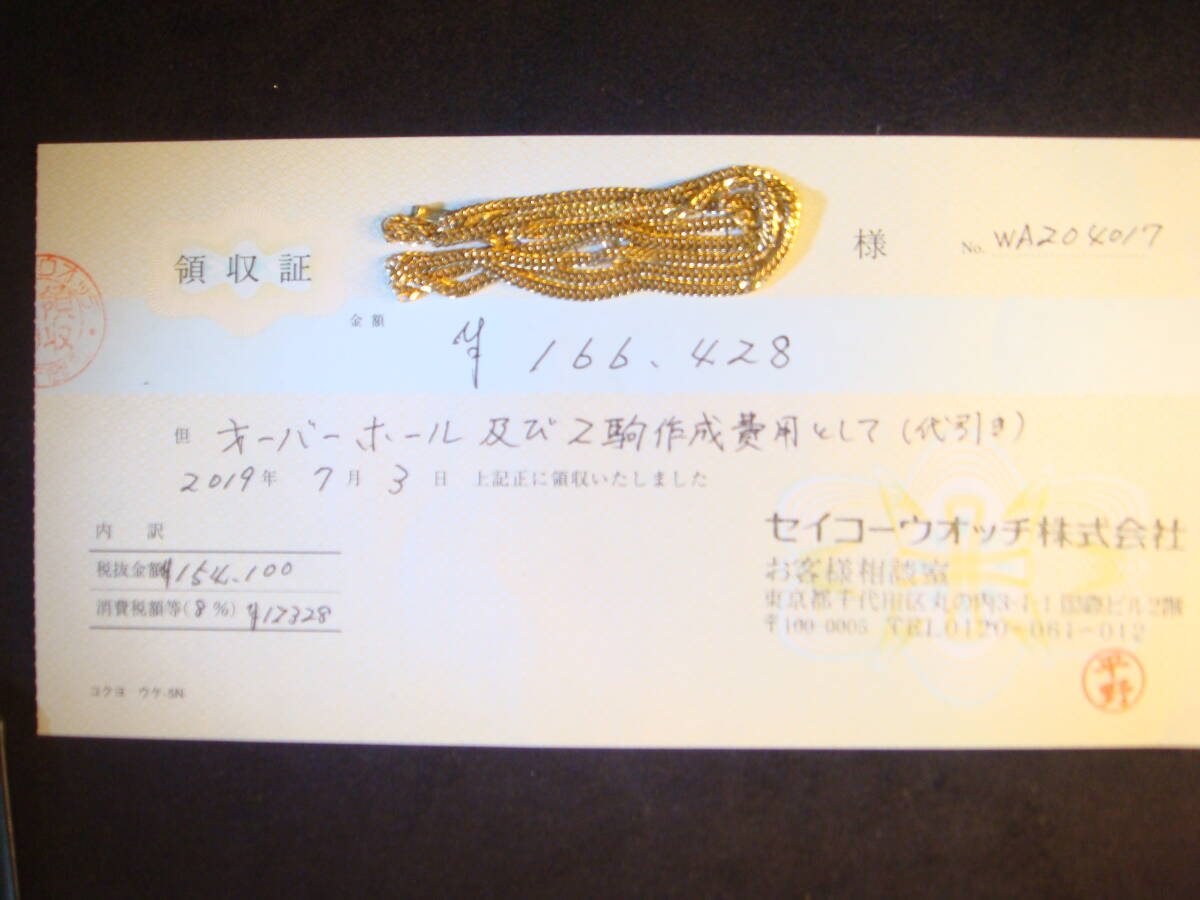 様 No. WA204017
領収証
領収
金額
¥166.428
但 オーバーホール及び2駒作成費用として(代引き)
2019年 7月 3日 上記正に領収いたしました
内訳
税抜金額 ¥154.100
消費税額等(8%) ¥12328
セイコーウオッチ株式会社
お客様相談室
東京都千代田区丸の内3-1-1国際ビル2階
〒100-0005 TEL0120-061-012
平野
コクヨ ウケ-5N